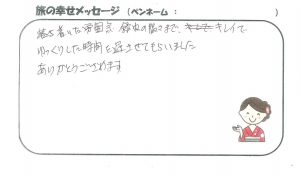 旅の幸せメッセージ (ペンネーム: )
落ち着いた雰囲気 館内の隅々まで、キレイで
ゆっくりした時間を過ごさせてもらいました
ありがとうございます